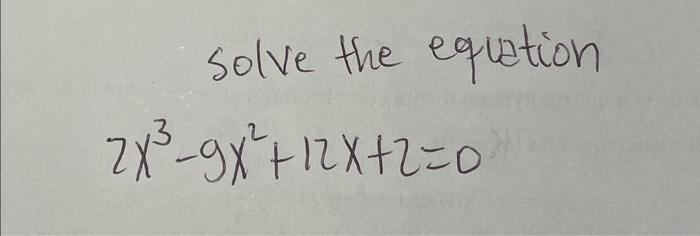 solve the equation
2x³-9x²+12x+2=0